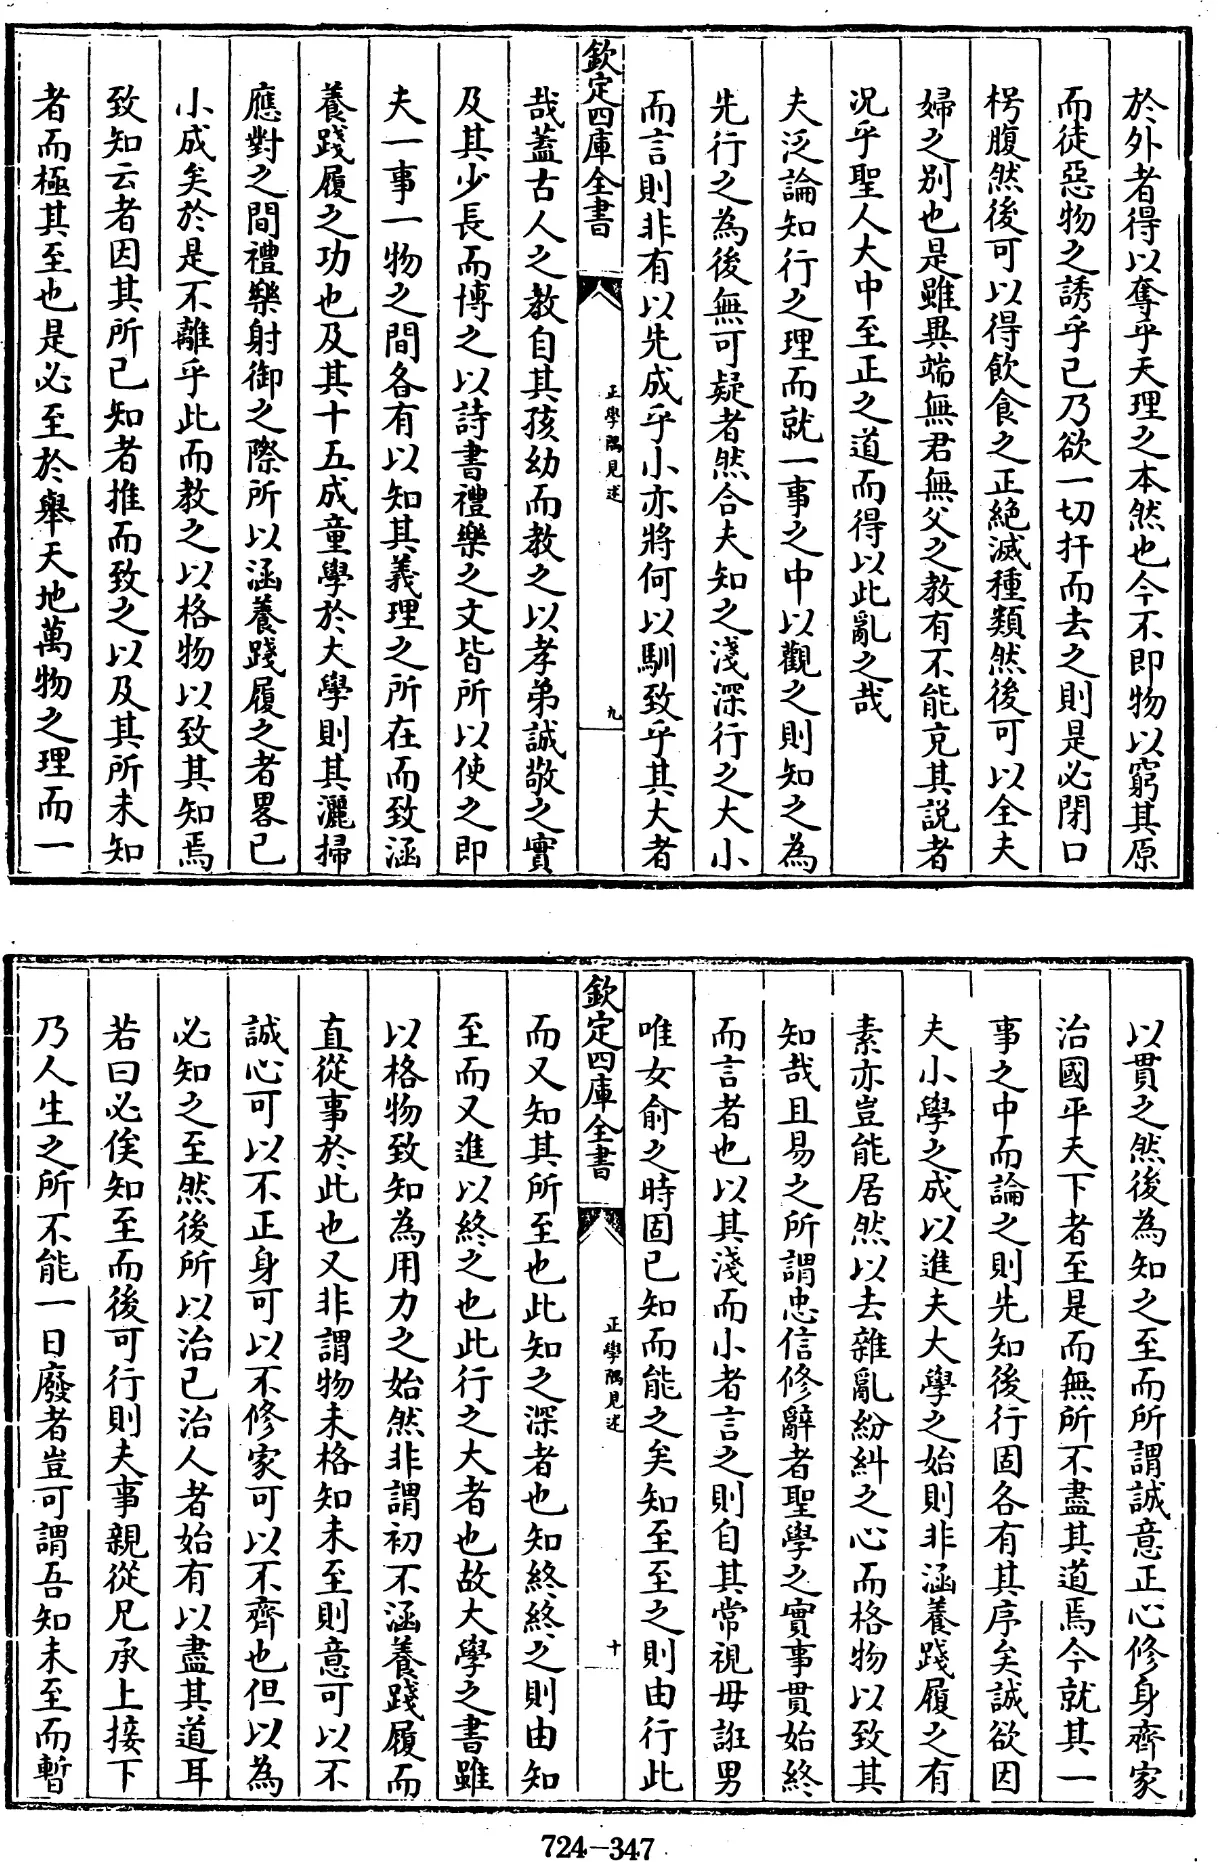 於外者得以奪乎天理之本然也今不即物以窮其原
而徒惡物之誘乎己乃欲一切扞而去之則是必閉口
枵腹然後可以得飲食之正絶滅種類然後可以全夫
婦之别也是雖異端無君無父之教有不能充其説者
況乎聖人大中至正之道而得以此亂之哉
夫泛論知行之理而就一事之中以觀之則知之為
先行之為後無可疑者然合夫知之淺深行之大小
而言則非有以先成乎小亦將何以馴致乎其大者
欽定四庫全書
正學隅見述
九
哉蓋古人之教自其孩幼而教之以孝弟誠敬之實
及其少長而博之以詩書禮樂之文皆所以使之即
夫一事一物之間各有以知其義理之所在而致涵
養踐履之功也及其十五成童學於大學則其灑掃
應對之間禮樂射御之際所以涵養踐履之者畧已
小成矣於是不離乎此而教之以格物以致其知焉
致知云者因其所已知者推而致之以及其所未知
者而極其至也是必至於舉天地萬物之理而一
以貫之然後為知之至而所謂誠意正心修身齊家
治國平天下者至是而無所不盡其道焉今就其一
事之中而論之則先知後行固各有其序矣誠欲因
夫小學之成以進夫大學之始則非涵養踐履之有
素亦豈能居然以去雜亂紛糾之心而格物以致其
知哉且易之所謂忠信修辭者聖學之實事貫始終
而言者也以其淺而小者言之則自其常視毋誑男
唯女俞之時固已知而能之矣知至至之則由行此
欽定四庫全書
正學隅見述
十
而又知其所至也此知之深者也知終終之則由知
至而又進以終之也此行之大者也故大學之書雖
以格物致知為用力之始然非謂初不涵養踐履而
直從事於此也又非謂物未格知未至則意可以不
誠心可以不正身可以不修家可以不齊也但以為
必知之至然後所以治己治人者始有以盡其道耳
若曰必俟知至而後可行則夫事親從兄承上接下
乃人生之所不能一日廢者豈可謂吾知未至而暫
724-347